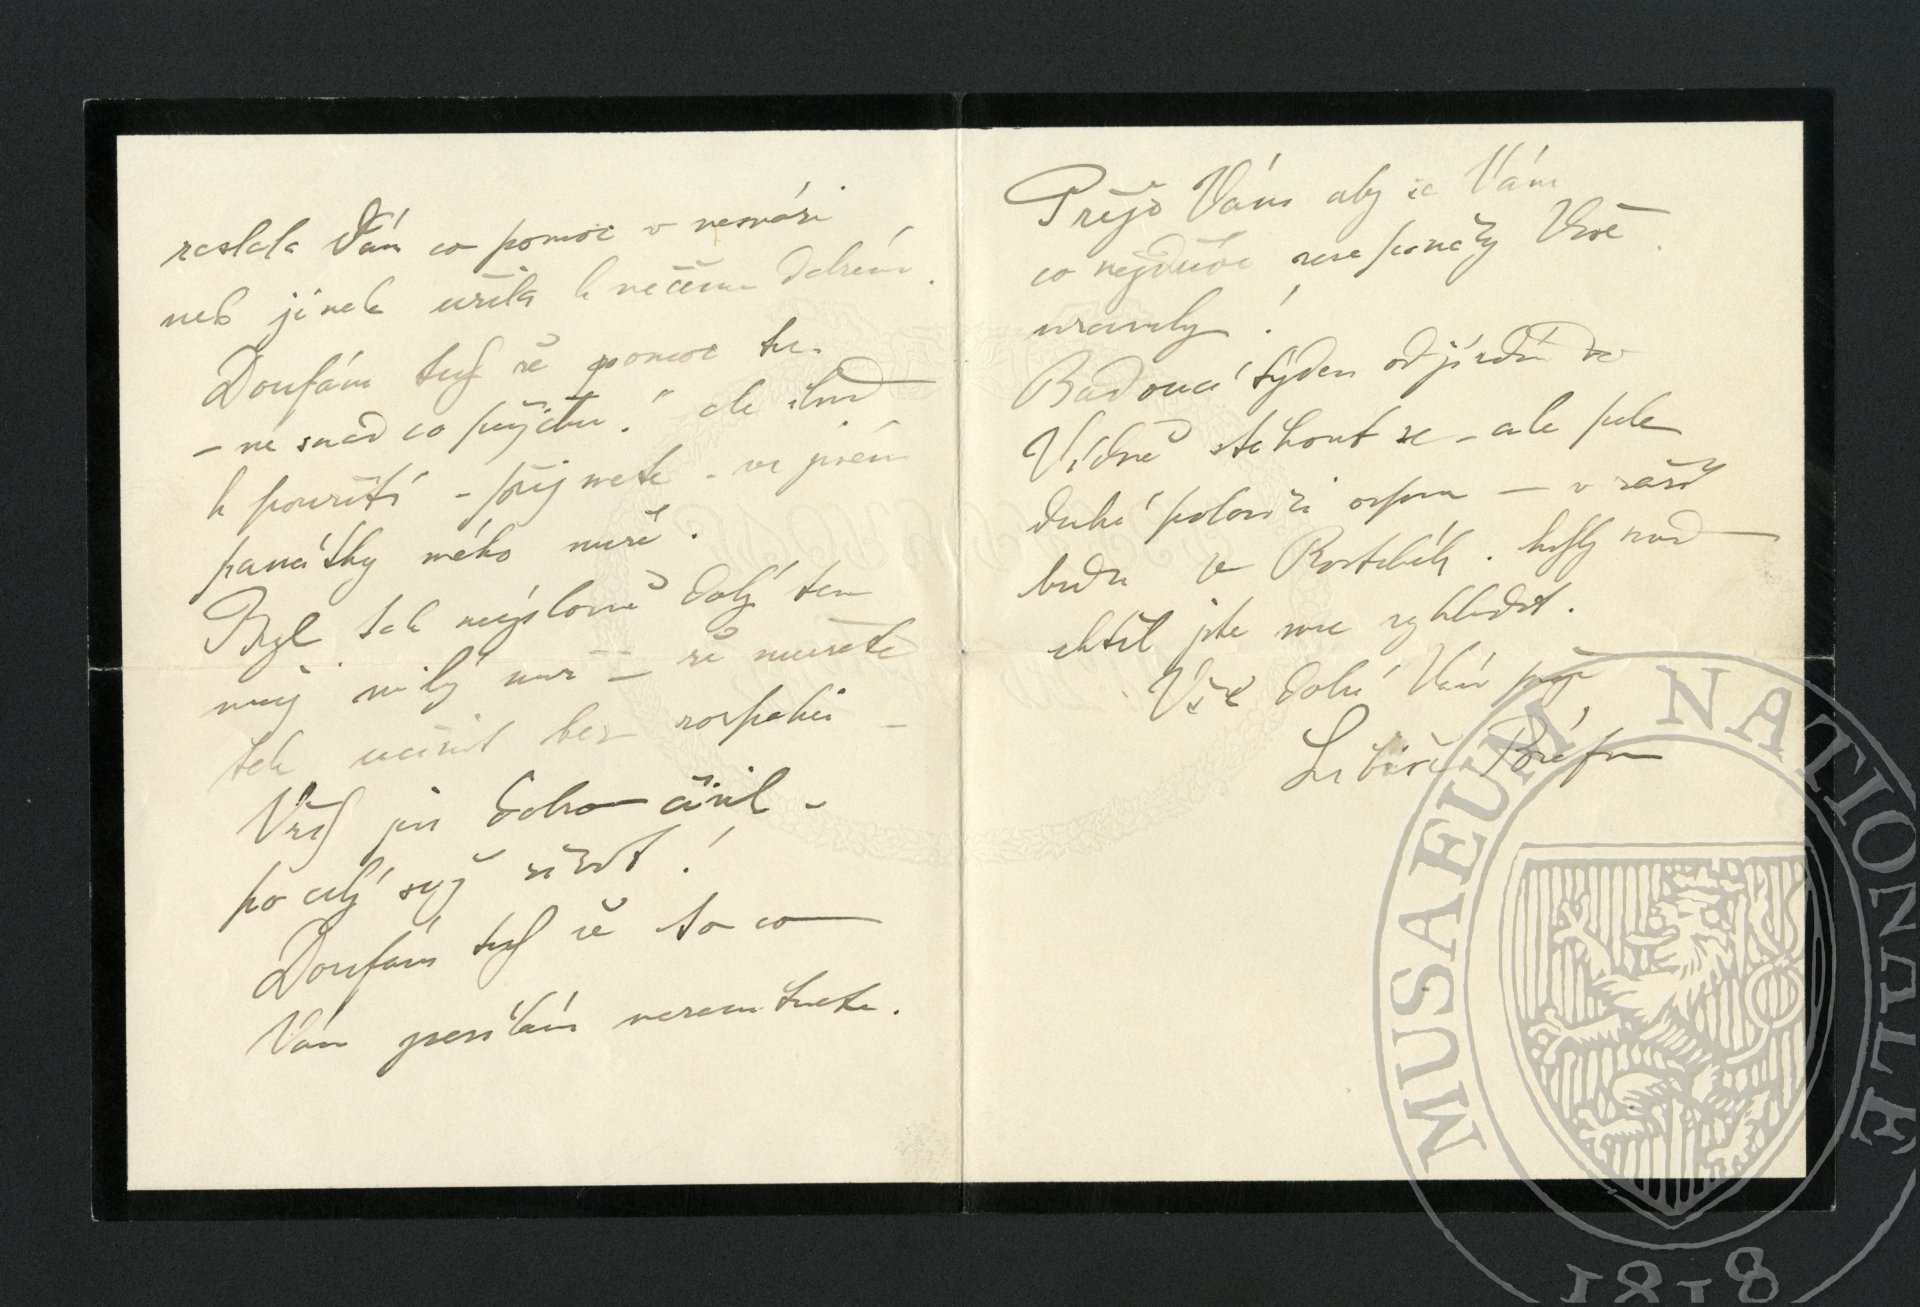 zaslala Vám co pomoc v nesnázi
neb jinak užila k něčemu dobrém.
Doufám tuf že pomoc tu
– ne snad co půjčku! ale
k použití – přijmete – ve jmén
památky mého muže.
Byl tak dobrý ten
můj milý muž – že můžete
tak učinit bez rozpaků –
Vžd jen dobro činil –
po celý svůj život!
Doufám že to co
Vám posílám nezamítnete.
Přeji Vám aby se Vám
co nejdříve Vaše
Budoucí týden odjíždím do
Vídně stěhovat se – ale
druhé polovici srpna – v září
budu v Roztokách. kdyby snad
chtěl jste mne vyhledat.
Vše dobré Vám přeje
Libuše Bráfová
MUSAEUM NATIONALE
1818